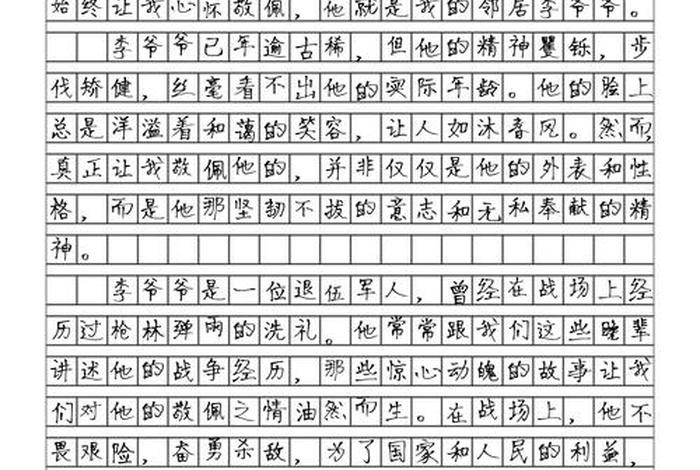 始终让我心怀敬佩，他就是我的邻居李爷爷。
李爷爷已年逾古稀，但他的精神矍铄，步
伐矫健，丝毫看不出他的实际年龄。他的脸上
总是洋溢着和蔼的笑容，让人如沐春风。然而，
真正让我敬佩他的，并非仅仅是他的外表和性
格，而是他那坚韧不拔的意志和无私奉献的精
神。
李爷爷是一位退伍军人，曾经在战场上经
历过枪林弹雨的洗礼。他常常跟我们这些晚辈
讲述他的战争经历，那些惊心动魄的故事让我
们对他的敬佩之情油然而生。在战场上，他不
畏艰险，奋勇杀敌，为了国家和人民的利益，